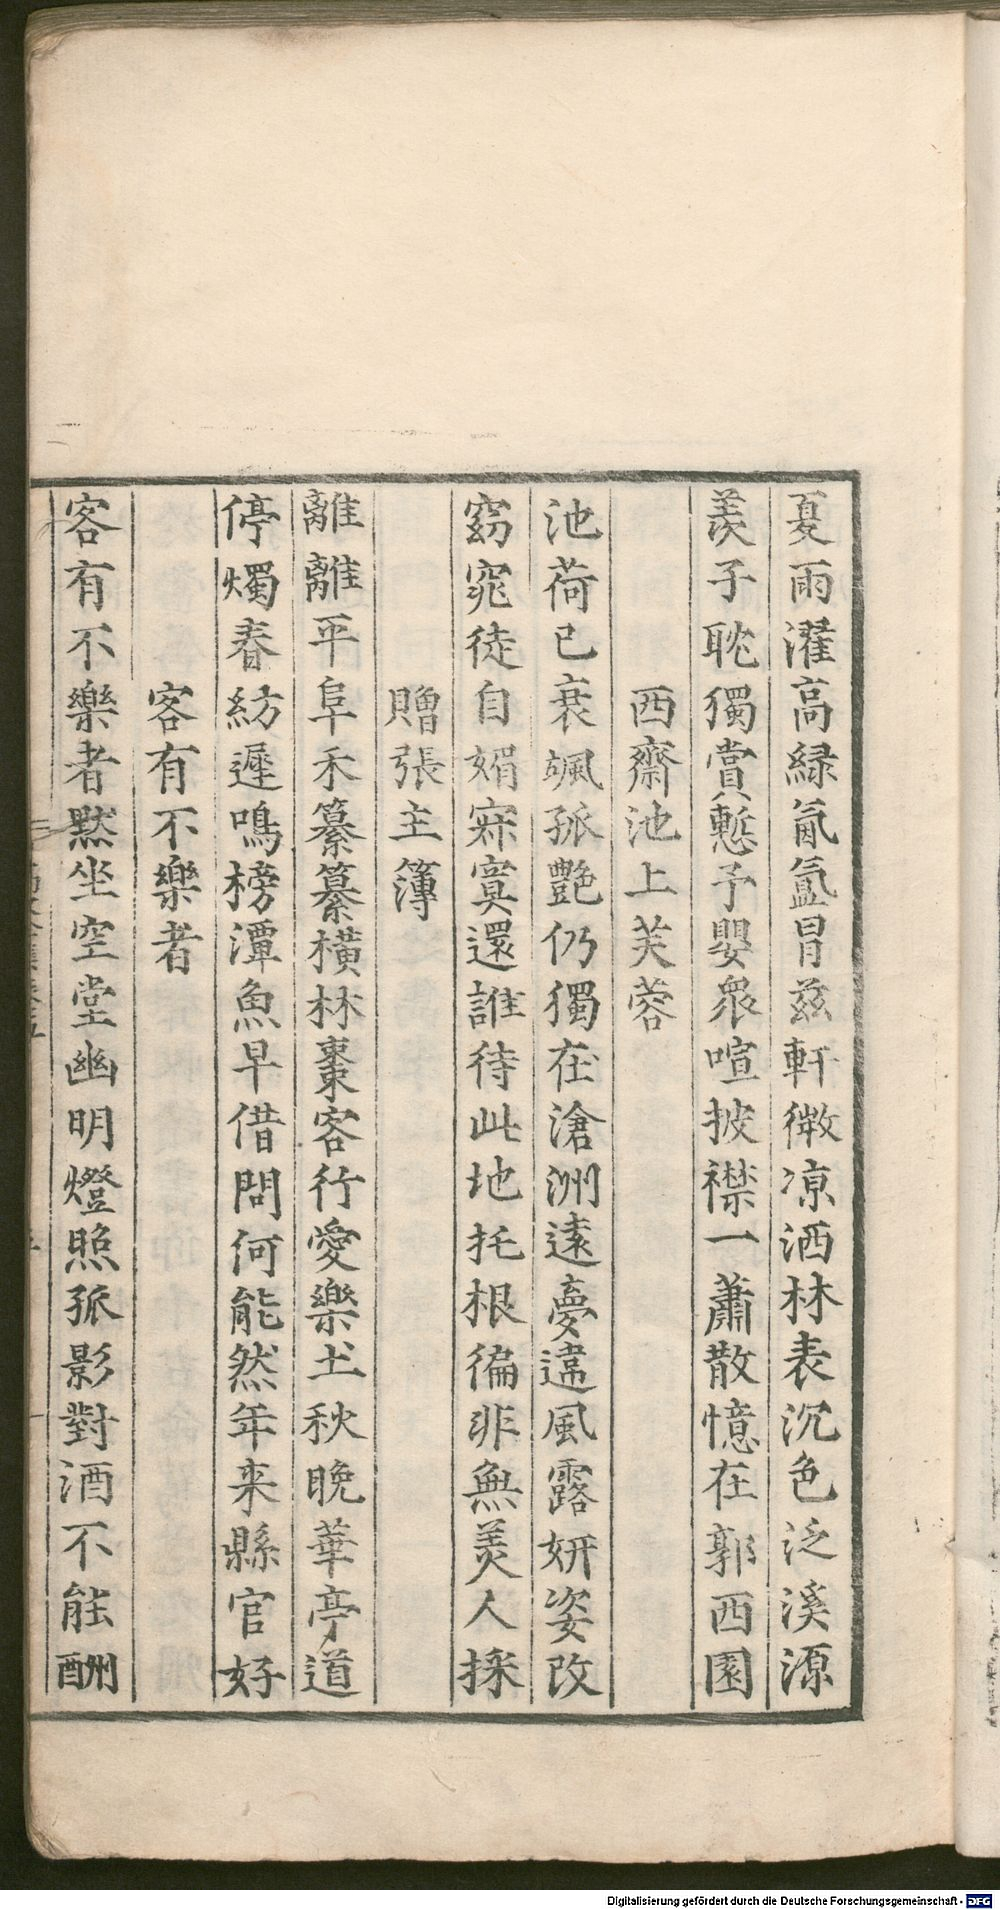 夏雨濯高緑氤氲冒茲軒微凉洒林表沉色泛溪源
羨子耽獨賞慙予嬰衆喧披襟一蕭散憶在郭西園
西齋池上芙蓉
池荷已衰颯孤艷仍獨在滄洲遠夢違風露妍姿改
窈窕徒自媚寂寞還誰待此地托根徧非無美人採
贈張主簿
離離平阜禾纂纂橫林棗客行愛樂土秋晚華亭道
停燭春紡遲鳴榜潭魚早借問何能然年来縣官好
客有不樂者
客有不樂者默坐空堂幽明燈照孤影對酒不能酬
Digitalisierung gefördert durch die Deutsche Forschungsgemeinschaft - DFG